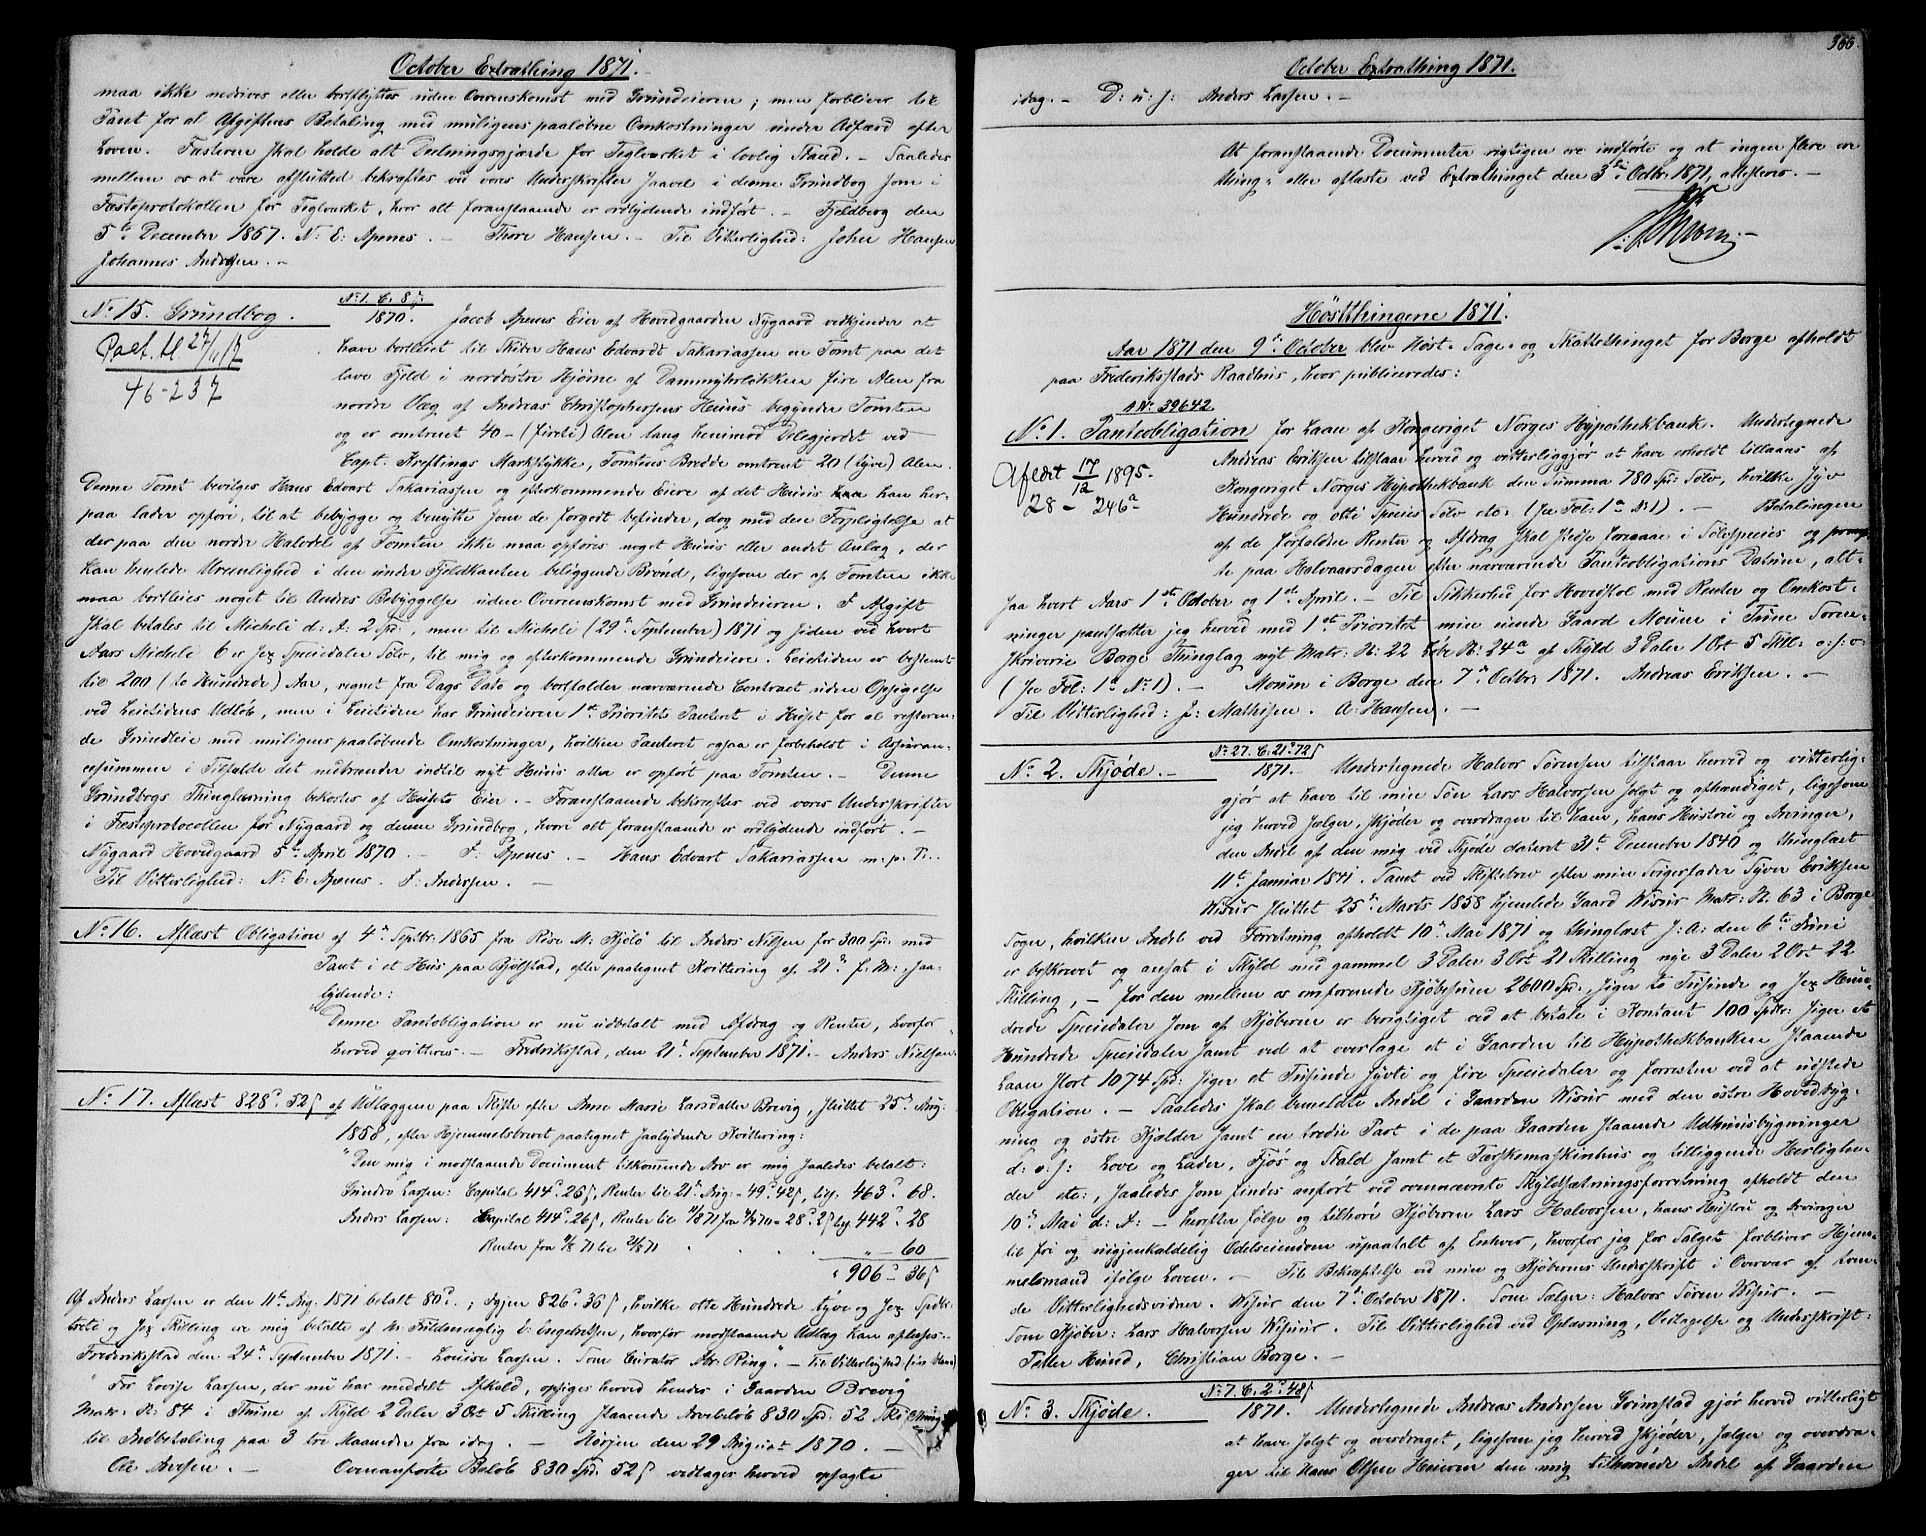 October Extrathing 1871.
maa ikke nedrives eller bortflyttes uden Overenskomst med Grundeieren; men forbliver til
Pant for al Afgiftens Betaling med muligens paaløbne Omkostninger under Adfærd efter
Loven. Fæsteren skal holde alt Delningsgjærde for Teglværket i lovlig Stand. – Saaledes
mellem os at være afsluttet bekræftes ved vores Underskrifter saavel i denne Grundbog som i
Fæsteprotokollen for Teglværket, hvor alt foranstaaende er ordlydende indført. – Fjeldberg den
5te December 1867. N: E: Apenes. – Thore Hansen. – Til Vitterlighed: Johan Hansen
Johannes Andersen. –
No 15. Grundbog.
No 1. C. 8 ß
1870. Jacob Apenes Eier af Hovedgaarden Nygaard vedkjender at
Pact. til 27/11 17
46-237
have bortleiet til Skider Hans Edvardt Sakariassen en Tomt paa det
lave Fjeld i nordøstre Hjørne af Dammyhrløkken fire Alen fra
nordre Væg af Andreas Christophersens Huus begynder Tomten
og er omtrent 40 – (fireti) Alen lang henimod Delegjerdet ved
Capt: Kreftings Markstykke, Tomtens Bredde omtrent 20 (tyve) Alen.
Denne Tomt bevilges Hans Edvart Sakariassen og efterkommende Eiere af det Huus han her-
paa lader opføre, til at bebygge og benytte som de forgodt befinder, dog med den Forpligtelse at
der paa den nordre Halvdel af Tomten ikke maa opføres noget Huus eller andet Anlæg, der
kan henlede Ureenlighed i den under Fjeldkanten beliggende Brønd, ligesom der af Tomten ikke
maa bortleies noget til Andres Bebyggelse uden Overenskomst med Grundeieren. I Afgift
skal betales til Micheli d: A: 2 Spd:, men til Micheli (29de September) 1871 og siden ved hvert
Aars Micheli 6 er sex Speciedaler Sølv, til mig og efterkommende Grundeiere. Leietiden er bestemt
til 200 (to Hundrede) Aar, regnet fra Dags Dato og bortfalder nærværende Contract uden Opsigelse
ved Leietidens Udløb, men i Leietiden har Grundeieren 1ste Prioritets Panteret i Huset for al resteren-
de Grundleie med muligens paaløbende Omkostninger, hvilken Panteret ogsaa er forbeholdt i Assuran-
cesummen i Tilfælde det nedbrænder indtil nyt Huus atter er opført paa Tomten. – Denne
Grundbogs Thinglæsning bekostes af Husets Eier. – Foranstaaende bekræftes ved vores Underskrifter
i Fæsteprotocollen for Nygaard og denne Grundbog, hvori alt foranstaaende er ordlydende indført. –
Nygaard Hovedgaard 5te April 1870. – J: Apenes. – Hans Edvart Sakariassen m. p. P.
Til Vitterlighed: N: E: Apenes. J: Andersen. –
No 16. Aflæst Obligation af 4de Septbr: 1865 fra Rise M: Kjølö til Anders Nilsen for 300 Spd: med
Pant i et Hus paa Bjølstad, efter paategnet Kvittering af 21de f: M:, saa-
lydende:
"Denne Pantobligation er nu udbetalt med Afdrag og Renter, hvorfor
herved qvitteres. – Fredrikstad, den 21de September 1871. – Anders Nielsen"
No 17. Aflæst 828d. 52 ß af Udlæggene paa Skifte efter Anne Marie Larsdatter Brevig, sluttet 25de Aug:
1858, efter Hjemmelsbrevet paategnet saalydende Kvittering:
"Den mig i modstaaende Document tilkommende Arv er mig saaledes betalt:
Gundro Larsen: Capital 414d. 26 ß, Renter til 21de Aug: – 49d. 42 ß, lig: 463d. 68.
Anders Larsen: Capital 414d. 26 ß, Renter til 11/8 71 fra 11/4 70 = 28d. 2 ß lig 442d. 28
Renter fra 11/8 71 til 21/8 71 " . . . . " – 60
" 906d – 36 ß
Af Anders Larsen er den 11te Aug: 1871 betalt 80d.; Igjen 826d. 36 ß, hvilke otte Hundrede tyve og sex Spdlr:
treti og sex Skilling ere mig betalte af Hr: Fuldmægtig E: Engebretsen, hvorfor modstaaende Udlæg kan aflæses. –
Frederikstad den 24de September 1871. – Louise Larsen. Som Curator Hr: Ring." – Til Vitterlighed
"For Lovise Larsen, der nu har meddelt Afkald, opsiges herved hendes i Gaarden Brevig
Matr: N: 84 i Thune af Skyld 2 Daler 3 Ort 5 Skilling staaende Arvebeløb 830 Spd: 52 Skilling
til Indbetaling paa 3 tre Maaneder fra idag. – Horsen den 29 August 1870. –
Ole Iversen. – Ovenanførte Beløb 830 Spd: 52 ß vedtages herved opsagte
366.
October Extrathing 1871.
idag. – D: u: s: Anders Larsen. –
At foranstaaende Documenter rigtigen ere indførte og at ingen flere ere
thing- eller aflæste ved Extrathinget den 3die Octbr: 1871, attesteres. –
Høstthingene 1871.
Aar 1871 den 9de October blev Høst- Sage- og Skattethinget for Borge afholdt
paa Frederiksstads Raadhuus, hvor publiceredes:
A No 39642
No 1. Panteobligation for Laan af Kongeriget Norges Hypothekbank. Undertegnede
Aflæst 17/12 1895.
28 – 246a
Andreas Eriksen tilstaar herved og vitterliggjør at have erholdt tillaans af
Kongeriget Norges Hypothekbank den Summa 780 Spd: Sølv, hvilke syv
Hundrede og otti Species Sølv etc: (see Fol: 1a No 1). – Betalingen
af de forfaldne Renter og Afdrag skal skee foregaae i Sølvspecies og promp-
te paa Halvaarsdagen efter nærværende Panteobligations Datum, alt-
saa hvert Aars 1ste October og 1ste April. – Til Sikkerhed for Hovedstol med Renter og Omkost-
ninger pantsætter jeg herved med 1ste Prioritet min eiende Gaard Moum i Tune Soren-
skriverie Borge Thinglag nyt Matr: N: 22 Løbe N: 24a af Skyld 3 Daler 1 Ort 5 Skll: o: s: v:
(see Fol: 1a No 1). – Moum i Borge den 7de Octbr: 1871. Andreas Eriksen. –
Til Vitterlighed: J: Mathisen. A: Hansen. –
No 2. Skjøde. –
No 27. C. 21d. 72 ß
1871. – Undertegnede Halvor Sørensen tilstaar herved og vitterlig-
gjør at have til min Søn Lars Halvorsen solgt og afhændiget, ligesom
jeg herved sælger, skjøder og overdrager til ham, hans Hustru og Arvinger,
den Andel af den mig ved Skjøde dateret 31te December 1840 og thinglæst
11te Januar 1841. Samt ved Skiftebrev efter min Svigerfader Syver Eriksen
Wisur sluttet 25de Marts 1858 hjemlede Gaard Wisur Matr: N: 63 i Borge
Sogn, hvilken Andel ved Forretning afholdt 10de Mai 1871 og thinglæst s: A: den 6te Juni
er beskrevet og ansat i Skyld med gammel 3 Daler 3 Ort 21 Skilling nye 3 Daler 2 Ort 22
Skilling, – for den mellem os omforenede Kjøbesum 2600 Spd:, siger to Tusinde og sex Hun-
drede Speciedaler som af Kjøberen er berigtiget ved at betale i Kontant 100 Spdlr: siger et
Hundrede Speciedaler samt ved at overtage et i Gaarden til Hypothekbanken staaende
Laan stort 1074 Spd: siger et Tusinde syvti og fire Speciedaler og forresten ved at udstede
Obligation. – Saaledes skal bemeldte Andel i Gaarden Wisur med den østre Hovedbyg-
ning og østre Kjælder samt en tredie Part i de paa Gaarden staaende Udhuusbygninger
d: e: s: Love og Lader, Fjøs og Stald samt et Tærskemaskinhuus og tilliggende Herlighe-
der etc:, saaledes som findes anført ved ovennævnte Skyldsætningsforretning afholdt den
10de Mai d: A: – herefter følge og tilhøre Kjøberen Lars Halvorsen, hans Hustru og Arvinger
til fri og uigjenkaldelig Odelseiendom upaatalt af Enhver, hvorfor jeg for Salget forbliver Hjem-
melsmand ifølge Loven. – Til Bekræftelse ved min og Kjøberens Underskrift i Overvær af tven-
de Vitterlighedsvidner. Wisur den 7de October 1871. Som Sælger: Halvor Sören Wisur. –
Som Kjøber: Lars Halvorsen Wisuur. Til Vitterlighed ved Oplæsning, Vedtagelse og Underskrift:
Petter Hund, Christian Borge. –
No 3. Skjøde.
No 7. C. 2d. 48 ß
1871. Undertegnede Andreas Andersen Grimstad gjør herved vitterligt
at have solgt og overdraget, ligesom jeg herved skjøder, sælger og overdra-
ger til Hans Olsen Huieren den mig tilhørende Andel af Gaarden